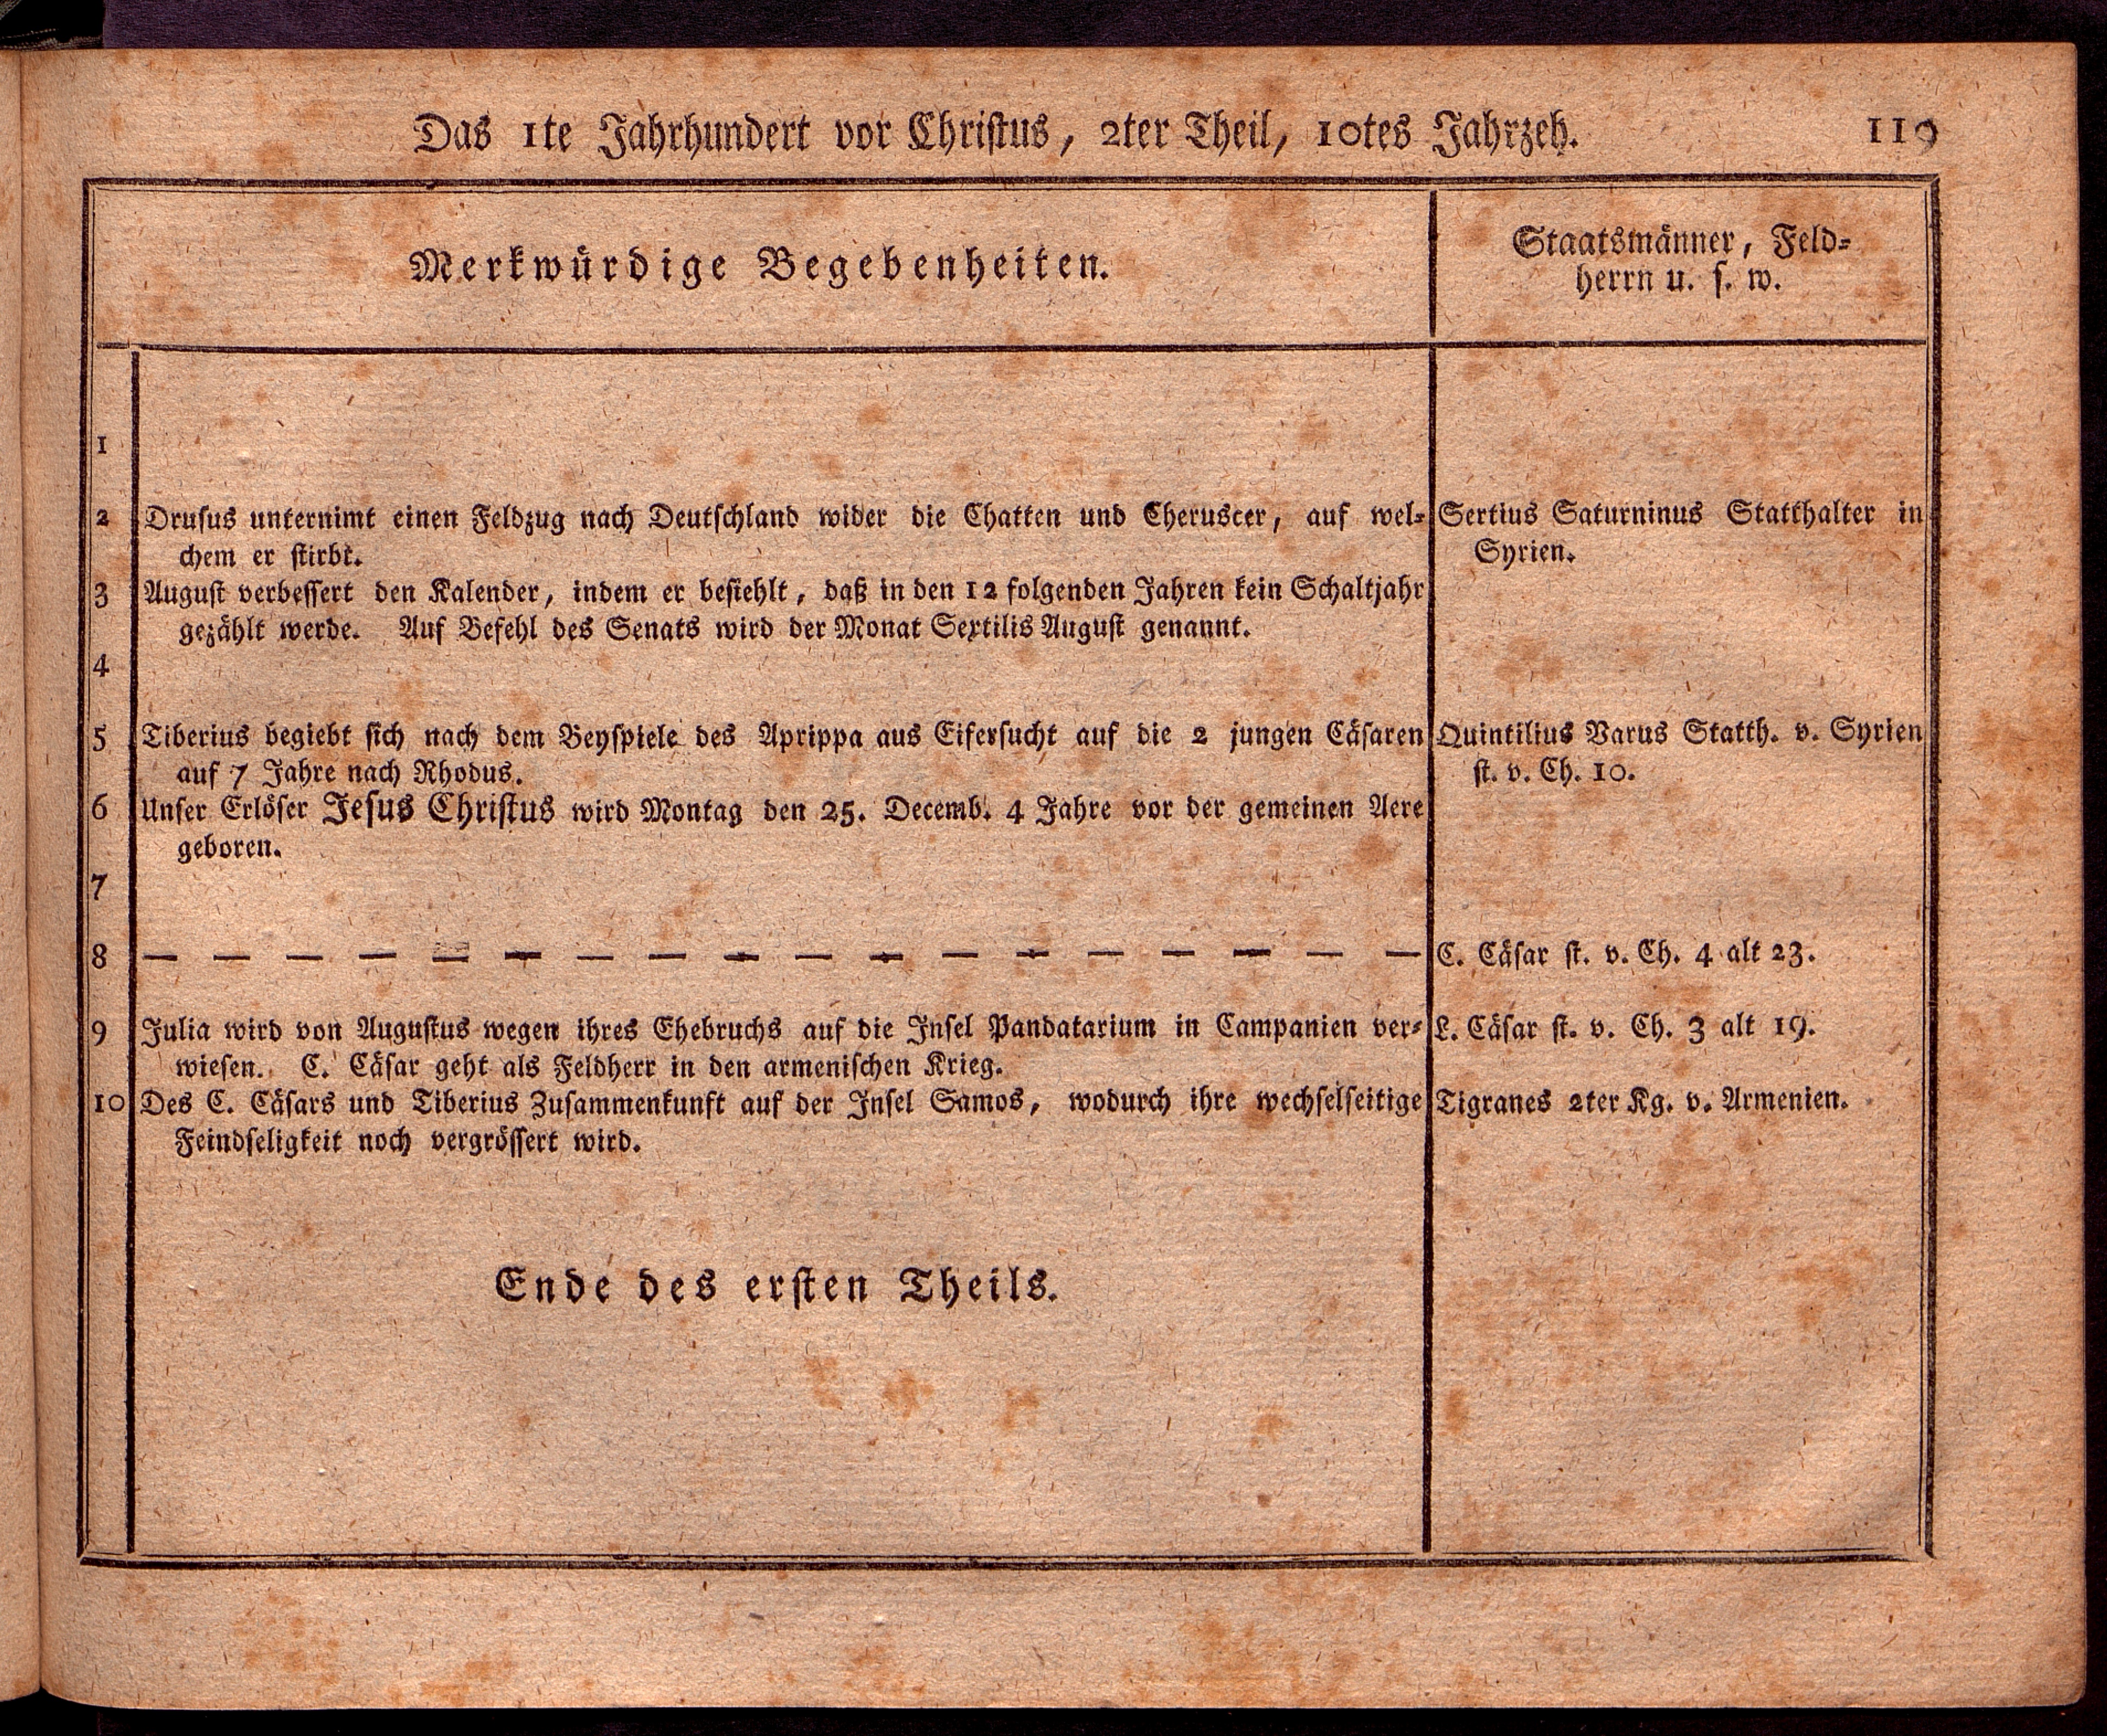 Das 1te Jahrhundert vor Christus, 2ter Theil, 10tes Jahrzeh.
119
Merkwürdige Begebenheiten.
Staatsmänner, Feld-
herrn u. s. w.
1
2 Drusus unternimt einen Feldzug nach Deutschland wider die Chatten und Cheruscer, auf wel-
chem er stirbt.
Sertius Saturninus Statthalter in
Syrien.
3 August verbessert den Kalender, indem er befiehlt, daß in den 12 folgenden Jahren kein Schaltjahr
gezählt werde. Auf Befehl des Senats wird der Monat Sextilis August genannt.
4
5 Tiberius begiebt sich nach dem Beyspiele des Aprippa aus Eifersucht auf die 2 jungen Cäsaren
auf 7 Jahre nach Rhodus.
Quintilius Varus Statth. v. Syrien
st. v. Ch. 10.
6 Unser Erlöser Jesus Christus wird Montag den 25. Decemb. 4 Jahre vor der gemeinen Aere
geboren.
7
8 — — — — — — — — — — — — — — — — — —
C. Cäsar st. v. Ch. 4 alt 23.
9 Julia wird von Augustus wegen ihres Ehebruchs auf die Insel Pandatarium in Campanien ver-
wiesen. C. Cäsar geht als Feldherr in den armenischen Krieg.
L. Cäsar st. v. Ch. 3 alt 19.
10 Des C. Cäsars und Tiberius Zusammenkunft auf der Insel Samos, wodurch ihre wechselseitige
Feindseligkeit noch vergrössert wird.
Tigranes 2ter Kg. v. Armenien.
Ende des ersten Theils.